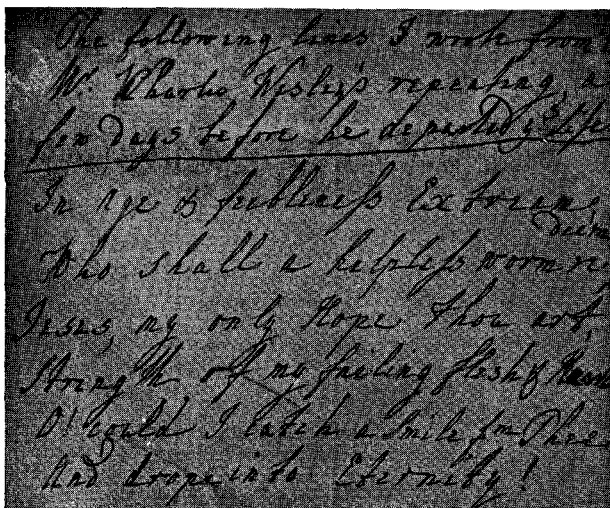 The following lines I wrote from
Mr. Charles Wesley's repeating, a
few Days before he departed ys. Life
In Age & feebleness Extream,
Who shall a helpless worm redeem
Jesus, my only Hope Thou art,
Strength of my failing flesh &
O! could I catch a Smile fm. Thee
And drope into Eternity!